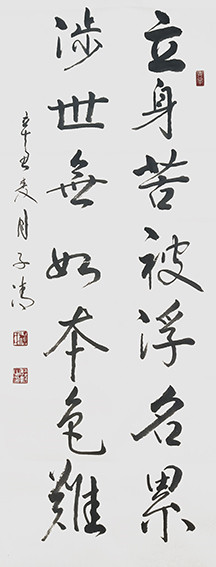 立身苦被浮名累
涉世無如本色難
辛丑夏月子